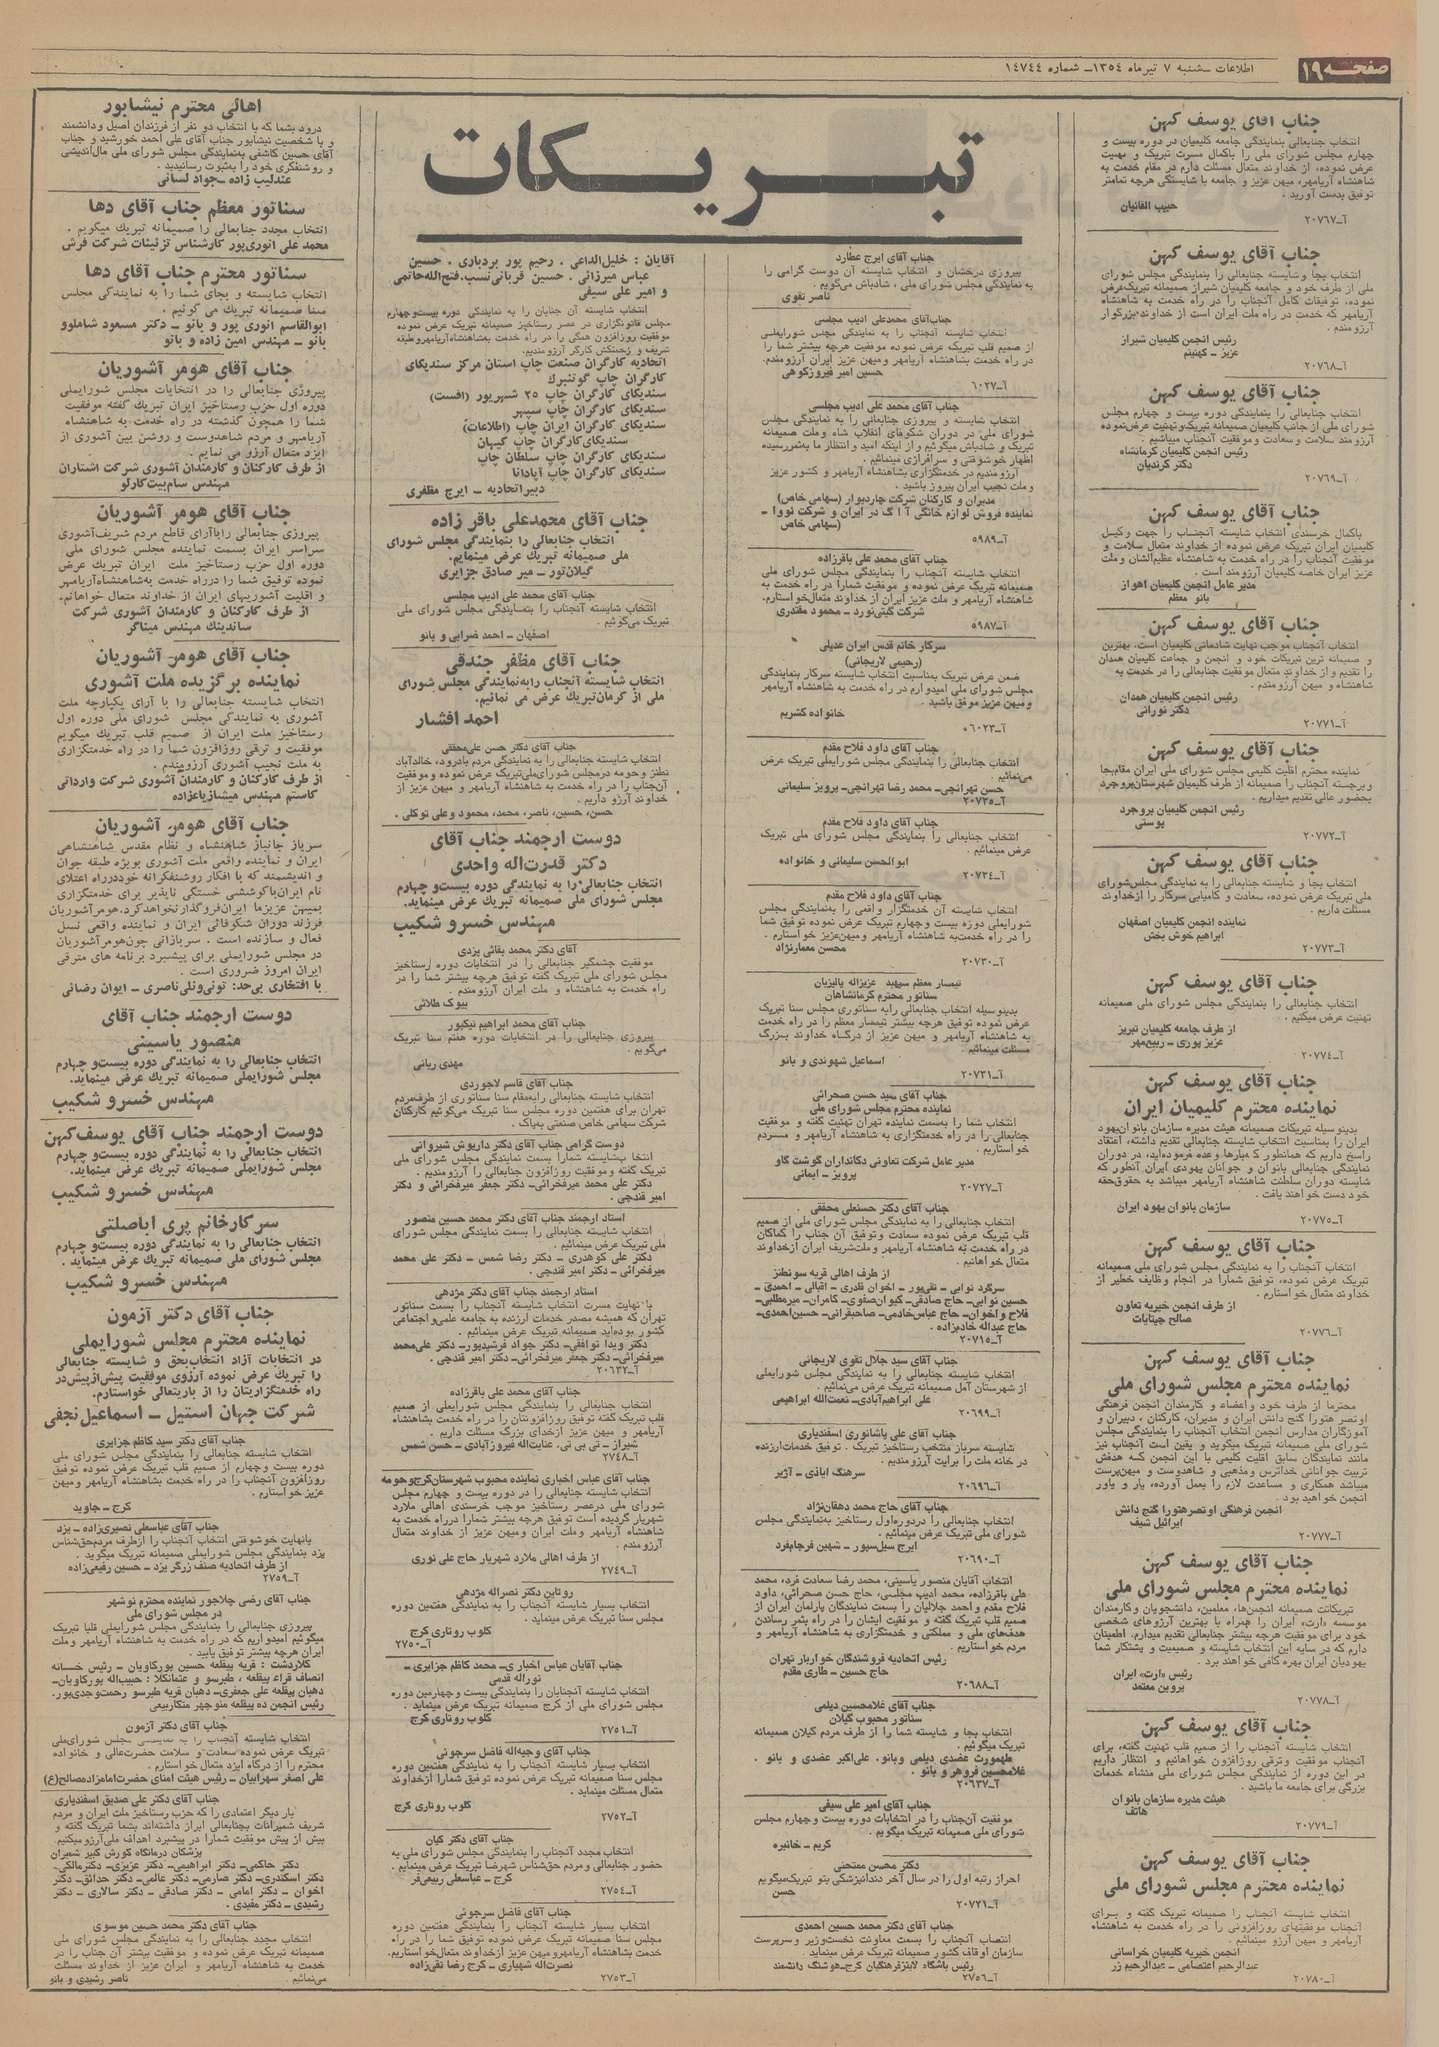 صفحه ۱۹
اطلاعات ـ شنبه ۷ تیرماه ۱۳۵۴ـ شماره ۱۴۷۴۴
تبریکات
جناب آقای یوسف کهن
انتخاب جنابعالی بنمایندگی جامعه کلیمیان در دوره بیست و
چهارم مجلس شورای ملی را باکمال مسرت تبریک و تهنیت
عرض نموده، از خداوند متعال مسئلت دارم در مقام خدمت به
شاهنشاه آریامهر، میهن عزیز و جامعه با شایستگی هرچه تمامتر
توفیق بدست آورید.
حبیب القانیان
آـ۲۰۷۶۷
جناب آقای یوسف کهن
انتخاب بجا و شایسته جنابعالی را بنمایندگی مجلس شورای
ملی از طرف خود و جامعه کلیمیان شیراز صمیمانه تبریک عرض
نموده، توفیقات کامل آنجناب را در راه خدمت به شاهنشاه
آریامهر که خدمت در راه ملت ایران است از خداوند بزرگوار
آرزومندم.
رئیس انجمن کلیمیان شیراز
آـ۲۰۷۶۸
جناب آقای یوسف کهن
انتخاب جنابعالی را بنمایندگی دوره بیست و چهارم مجلس
شورای ملی از جانب کلیمیان صمیمانه تبریک و تهنیت عرض نموده
آرزومند سلامت و سعادت و موفقیت جنابعالی میباشیم.
رئیس انجمن کلیمیان کرمانشاه
دکتر کرندیان
آـ۲۰۷۶۹
جناب آقای یوسف کهن
باکمال خرسندی انتخاب شایسته آنجناب را جهت وکیل
کلیمیان ایران تبریک عرض نموده از خداوند متعال سلامت و
موفقیت آنجناب را در راه خدمت به شاهنشاه عظیم‌الشان و ملت
عزیز ایران خاصه کلیمیان آرزومند است.
مدیر عامل انجمن کلیمیان اهواز
بانو معظم
جناب آقای یوسف کهن
انتخاب آنجناب موجب نهایت شادمانی کلیمیان است، بهترین
و صمیمانه ترین تبریکات خود و انجمن و جماعت کلیمیان همدان
را تقدیم و از خداوند متعال موفقیت جنابعالی را در خدمت به
شاهنشاه و میهن آرزومندم.
رئیس انجمن کلیمیان همدان
دکتر نورانی
آـ۲۰۷۷۱
جناب آقای یوسف کهن
نماینده محترم اقلیت کلیمی مجلس شورای ملی ایران مقام بجا
و برجسته آنجناب را صمیمانه از طرف کلیمیان شهرستان بروجرد
بحضور عالی تقدیم میداریم.
رئیس انجمن کلیمیان بروجرد
آـ۲۰۷۷۲
جناب آقای یوسف کهن
انتخاب بجا و شایسته جنابعالی را به نمایندگی مجلس شورای
ملی تبریک عرض نموده، سعادت و کامیابی سرکار را از خداوند
مسئلت داریم.
نماینده انجمن کلیمیان اصفهان
ابراهیم خوش بخش
آـ۲۰۷۷۳
جناب آقای یوسف کهن
انتخاب جنابعالی را بنمایندگی مجلس شورای ملی صمیمانه
تهنیت عرض میکنیم.
از طرف جامعه کلیمیان تبریز
عزیز پوری ـ ربیع‌مهر
آـ۲۰۷۷۴
جناب آقای یوسف کهن
نماینده محترم کلیمیان ایران
بدینوسیله تبریکات صمیمانه هیئت مدیره سازمان بانوان یهود
ایران را بمناسبت انتخاب شایسته جنابعالی تقدیم داشته، اعتقاد
راسخ داریم که همانطور که بارها وعده فرموده‌اید، در دوران
نمایندگی جنابعالی بانوان و جوانان یهودی ایران آنطور که
شایسته دوران سلطنت شاهنشاه آریامهر میباشد به حقوق حقه
خود دست خواهند یافت.
سازمان بانوان یهود ایران
آـ۲۰۷۷۵
جناب آقای یوسف کهن
انتخاب آنجناب را به نمایندگی مجلس شورای ملی صمیمانه
تبریک عرض نموده، توفیق شمارا در انجام وظایف خطیر از
خداوند متعال خواستارم.
از طرف انجمن خیریه تعاون
آـ۲۰۷۷۶
جناب آقای یوسف کهن
نماینده محترم مجلس شورای ملی
محترما از طرف خود و اعضاء و کارمندان انجمن فرهنگی
اوتصر هتورا گنج دانش ایران و مدیران، کارکنان، دبیران و
آموزگاران مدارس انجمن انتخاب آنجناب را بنمایندگی مجلس
شورای ملی صمیمانه تبریک میگوید و یقین است آنجناب نیز
مانند نمایندگان سابق اقلیت کلیمی با این انجمن که هدفش
تربیت جوانانی خداترس و مذهبی و شاهدوست و میهن‌پرست
میباشد همکاری و مساعدت لازم را بعمل آورده، یار و یاور
انجمن خواهید بود.
انجمن فرهنگی اوتصر هتورا گنج دانش
آـ۲۰۷۷۷
جناب آقای یوسف کهن
نماینده محترم مجلس شورای ملی
تبریکات صمیمانه انجمن‌ها، معلمین، دانشجویان و کارمندان
موسسه «ارت» ایران را همراه با بهترین آرزوهای شخصی
خود برای موفقیت هرچه بیشتر جنابعالی تقدیم میدارم. اطمینان
دارم که در سایه این انتخاب شایسته و صمیمیت و پشتکار شما
یهودیان ایران بهره کافی خواهند برد.
رئیس «ارت» ایران
پروین معتمد
آـ۲۰۷۷۸
جناب آقای یوسف کهن
انتخاب شایسته آنجناب را از صمیم قلب تهنیت گفته، برای
آنجناب موفقیت و ترقی روزافزون خواهانیم و انتظار داریم
در این دوره از نمایندگی مجلس شورای ملی منشاء خدمات
بزرگی برای جامعه ما باشید.
هیئت مدیره سازمان بانوان
هاتف
آـ۲۰۷۷۹
جناب آقای یوسف کهن
نماینده محترم مجلس شورای ملی
انتخاب شایسته آنجناب را صمیمانه تبریک گفته و برای
آنجناب موفقیتهای روزافزونی را در راه خدمت به شاهنشاه
آریامهر و میهن آرزو مینمائیم.
انجمن خیریه کلیمیان خراسانی
عبدالرحیم اعتصامی ـ عبدالرحیم زر
آـ۲۰۷۸۰
جناب آقای ایرج عطارد
پیروزی درخشان و انتخاب شایسته آن دوست گرامی را
به نمایندگی مجلس شورای ملی، شادباش می‌گویم.
ناصر تقوی
جناب آقای محمدعلی ادیب مجلسی
انتخاب شایسته آنجناب را به نمایندگی مجلس شورایملی
از صمیم قلب تبریک عرض نموده موفقیت هرچه بیشتر شما را
در راه خدمت بشاهنشاه آریامهر و میهن عزیز ایران آرزومندم.
حسین امیر فیروزکوهی
آـ۶۰۲۷
جناب آقای محمد علی ادیب مجلسی
انتخاب شایسته و پیروزی جنابعالی را به نمایندگی مجلس
شورای ملی در دوران شکوفای انقلاب شاه وملت صمیمانه
تبریک و شادباش میگوئیم و از اینکه امید و انتظار ما به ثمررسیده
اظهار خوشوقتی و سرافرازی مینمائیم.
آرزومندیم در خدمتگزاری بشاهنشاه آریامهر و کشور عزیز
و ملت نجیب ایران پیروز باشید.
مدیران و کارکنان شرکت چاردیوار (سهامی خاص)
نماینده فروش لوازم خانگی آ آ گ در ایران و شرکت نووا ـ
(سهامی خاص)
آـ۵۹۸۹
جناب آقای محمد علی باقرزاده
انتخاب شایسته آنجناب را بنمایندگی مجلس شورای ملی
صمیمانه تبریک عرض نموده و موفقیت شمارا در راه خدمت به
شاهنشاه آریامهر و ملت عزیز ایران از خداوند متعال خواستارم.
شرکت گیتی‌نورد ـ محمود مقتدری
آـ۵۹۸۷
سرکار خانم قدس ایران عدیلی
(رحیمی لاریجانی)
ضمن عرض تبریک بمناسبت انتخاب شایسته سرکار بنمایندگی
مجلس شورای ملی امیدوارم در راه خدمت به شاهنشاه آریامهر
و میهن عزیز موفق باشید.
خانواده کشریم
آـ۶۰۲۳
جناب آقای داود فلاح مقدم
انتخاب جنابعالی را بنمایندگی مجلس شورایملی تبریک عرض
می‌نمائیم.
حسن تهرانچی ـ محمد رضا تهرانچی ـ پرویز سلیمانی
آـ۲۰۷۳۵
جناب آقای داود فلاح مقدم
انتخاب جنابعالی را بنمایندگی مجلس شورای ملی تبریک
عرض مینمائیم.
ابوالحسن سلیمانی و خانواده
آـ۲۰۷۳۴
جناب آقای داود فلاح مقدم
انتخاب شایسته آن خدمتگزار واقعی را به‌نمایندگی مجلس
شورایملی دوره بیست و چهارم تبریک عرض نموده توفیق شما
را در راه خدمت به شاهنشاه آریامهر و میهن عزیز خواستارم.
محسن معمارنژاد
آـ۲۰۷۳۰
تیمسار معظم سپهبد عزیزاله پالیزبان
سناتور محترم کرمانشاهان
بدینوسیله انتخاب جنابعالی رابه سناتوری مجلس سنا تبریک
عرض نموده توفیق هرچه بیشتر تیمسار معظم را در راه خدمت
به شاهنشاه آریامهر و میهن عزیز از درگاه خداوند بزرگ
مسئلت مینمائیم.
اسماعیل شهوندی و بانو
آـ۲۰۷۳۱
جناب آقای سید حسن صحرائی
نماینده محترم مجلس شورای ملی
انتخاب شما را بسمت نماینده تهران تهنیت گفته و موفقیت
جنابعالی را در راه خدمتگزاری به شاهنشاه آریامهر و مردم
خواستاریم.
مدیر عامل شرکت تعاونی دکانداران گوشت گاو
پرویز ـ ایمانی
آـ۲۰۷۲۷
جناب آقای دکتر حسنعلی محققی
انتخاب جنابعالی را به نمایندگی مجلس شورای ملی از صمیم
قلب تبریک عرض نموده سعادت و توفیق آن جناب را کماکان
در راه خدمت به شاهنشاه آریامهر و ملت شریف ایران از خداوند
متعال خواهانیم.
از طرف اهالی قریه سو نطنز
آـ۲۰۷۱۵
جناب آقای سید جلال تقوی لاریجانی
انتخاب شایسته جنابعالی را به نمایندگی مجلس شورایملی
از شهرستان آمل صمیمانه تبریک عرض می‌نمائیم.
علی ابراهیم‌آبادی ـ نعمت‌الله ابراهیمی
آـ۲۰۶۹۹
جناب آقای علی پاشانوری اسفندیاری
شایسته سرباز منتخب رستاخیز تبریک. توفیق خدمات ارزنده
در خانه ملت را برایت آرزومندیم.
آـ۲۰۶۹۶
جناب آقای حاج محمد دهقان‌نژاد
انتخاب جنابعالی را دردوره اول رستاخیز به‌نمایندگی مجلس
شورای ملی تبریک عرض مینمائیم.
ایرج سیل‌سپور ـ شهین فرجام‌فرد
آـ۲۰۶۹۰
انتخاب آقایان منصور یاسینی، محمد رضا سعادت فرد، محمد
علی باقرزاده، محمد ادیب مجلسی، حاج حسن صحرائی، داود
فلاح مقدم و احمد جلالیان را بسمت نمایندگان پارلمان ایران از
صمیم قلب تبریک گفته و موفقیت ایشان را در راه بثمر رساندن
هدف‌های ملی و مملکتی و خدمتگزاری به شاهنشاه آریامهر و
مردم خواستاریم.
رئیس اتحادیه فروشندگان خواربار تهران
حاج حسین ـ طاری مقدم
آـ۲۰۶۸۸
جناب آقای غلامحسین دیلمی
سناتور محبوب گیلان
انتخاب بجا و شایسته شما را از طرف مردم گیلان صمیمانه
تبریک میگوئیم.
طهمورث عضدی دیلمی وبانو، علی‌اکبر عضدی و بانو.
غلامحسین فروهر و بانو.
آـ۲۰۶۳۷
جناب آقای امیر علی سیفی
موفقیت آن‌جناب را در انتخابات دوره بیست و چهارم مجلس
شورای ملی صمیمانه تبریک میگویم.
دکتر محسن ممتحنی
احراز رتبه اول را در سال آخر دندانپزشکی بتو تبریک میگویم
حسن
آـ۲۰۷۲۱
جناب آقای دکتر محمد حسین احمدی
انتصاب آنجناب را بسمت معاونت نخست‌وزیر و سرپرست
سازمان اوقاف کشور صمیمانه تبریک عرض مینماید.
رئیس باشگاه لاینز فرهنگیان کرج ـ هوشنگ دانشمند
آـ۲۷۵۶
آقایان: خلیل‌الداعی، رحیم پور بردباری، حسین
عباس میرزائی، حسین قربانی‌نسب، فتح‌الله حاتمی
و امیر علی سیفی
انتخاب شایسته آن جنابان را به نمایندگی دوره بیست‌وچهارم
مجلس قانونگزاری در عصر رستاخیز صمیمانه تبریک عرض نموده
موفقیت روزافزون همگی را در راه خدمت به‌شاهنشاه‌آریامهر وطبقه
شریف و زحمتکش کارگر آرزومندیم.
اتحادیه کارگران صنعت چاپ استان مرکز سندیکای
کارگران چاپ گوتنبرگ
سندیکای کارگران چاپ ۲۵ شهریور (افست)
سندیکای کارگران چاپ سپهر
سندیکای کارگران ایران چاپ (اطلاعات)
سندیکای کارگران چاپ کیهان
سندیکای کارگران چاپ سلطان چاپ
سندیکای کارگران چاپ آپادانا
دبیر اتحادیه ـ ایرج مظفری
جناب آقای محمدعلی باقر زاده
انتخاب جنابعالی را بنمایندگی مجلس شورای
ملی صمیمانه تبریک عرض مینمایم.
گیلان‌تور ـ میر صادق جزایری
جناب آقای محمد علی ادیب مجلسی
انتخاب شایسته آنجناب را بنمایندگی مجلس شورای ملی
تبریک می‌گوئیم.
اصفهان ـ احمد ضرابی و بانو
جناب آقای مظفر جندقی
انتخاب شایسته آنجناب رابه‌نمایندگی مجلس شورای
ملی از کرمان تبریک عرض می نمائیم.
احمد افشار
جناب آقای دکتر حسن علی محققی
انتخاب شایسته جنابعالی را به نمایندگی مردم بادرود، خالدآباد
نطنز و حومه درمجلس شورای‌ملی‌تبریک عرض نموده و موفقیت
آن‌جناب را در راه خدمت به شاهنشاه آریامهر و میهن عزیز از
خداوند آرزو داریم.
حسن، حسین، ناصر، محمد، محمود وعلی توکلی.
دوست ارجمند جناب آقای
دکتر قدرت‌اله واحدی
انتخاب جنابعالی را به نمایندگی دوره بیست‌و چهارم
مجلس شورای ملی صمیمانه تبریک عرض مینماید.
مهندس خسرو شکیب
آقای دکتر محمد بقائی یزدی
موفقیت چشمگیر جنابعالی را در انتخابات دوره رستاخیز
مجلس شورای ملی تبریک گفته توفیق هرچه بیشتر شما را در
راه خدمت به شاهنشاه و ملت ایران آرزومندم.
بیوک طلائی
جناب آقای محمد ابراهیم نیکپور
پیروزی جنابعالی را در انتخابات دوره هفتم سنا تبریک
می‌گویم.
مهدی ربانی
جناب آقای قاسم لاجوردی
انتخاب شایسته جنابعالی رابه‌مقام سنا سناتوری از طرف‌مردم
تهران برای هفتمین دوره مجلس سنا تبریک می‌گوئیم کارکنان
شرکت سهامی خاص صنعتی به‌پاک.
دوست گرامی جناب آقای دکتر داریوش شیروانی
انتخاب شایسته شمارا بسمت نمایندگی مجلس شورای ملی
تبریک گفته و موفقیت روزافزون جنابعالی را آرزومندیم.
دکتر علی محمد میرفخرائی ـ دکتر جعفر میرفخرائی و دکتر
امیر قندچی.
استاد ارجمند جناب آقای دکتر محمد حسین منصور
انتخاب شایسته جنابعالی را بسمت نمایندگی مجلس شورای
ملی تبریک عرض مینمائیم.
دکتر علی گوهدری ـ دکتر رضا شمس ـ دکتر علی محمد
میرفخرائی ـ دکتر امیر قندچی.
استاد ارجمند جناب آقای دکتر مژدهی
با نهایت مسرت انتخاب شایسته آنجناب را بسمت سناتور
تهران که همیشه مصدر خدمات ارزنده به جامعه علمی‌واجتماعی
کشور بوده‌اید صمیمانه تبریک عرض مینمائیم.
دکتر ویدا توافقی ـ دکتر جواد فرشیدپور ـ دکتر علی‌محمد
میرفخرائی ـ دکتر جعفر میرفخرائی ـ دکتر امیر قندچی.
آـ۲۰۶۳۲
جناب آقای محمد علی باقرزاده
انتخاب جنابعالی را بنمایندگی مجلس شورایملی از صمیم
قلب تبریک گفته توفیق روزافزونتان را در راه خدمت بشاهنشاه
آریامهر و میهن عزیز ازخدای بزرگ مسئلت داریم.
شیراز ـ تی بی تی، عنایت‌اله فیروزآبادی ـ حسن شمس
آـ۲۷۴۸
جناب آقای عباس اخباری نماینده محبوب شهرستان‌کرج‌وحومه
انتخاب شایسته جنابعالی را در دوره بیست و چهارم مجلس
شورای ملی درعصر رستاخیز موجب خرسندی اهالی ملارد
شهریار گردیده است توفیق هرچه بیشتر شمارا درراه خدمت به
شاهنشاه آریامهر وملت ایران ومیهن عزیز از خداوند متعال
آرزومندم.
از طرف اهالی ملارد شهریار حاج علی نوری
آـ۲۷۴۹
روتاین دکتر نصراله مژدهی
انتخاب بسیار شایسته آنجناب را به نمایندگی هفتمین دوره
مجلس سنا تبریک عرض مینماید.
کلوب روتاری کرج
آـ۲۷۵۰
جناب آقایان عباس اخباری ـ محمد کاظم جزایری ـ
نوراله قدمی
انتخاب شایسته آنجنابان را بنمایندگی بیست و چهارمین دوره
مجلس شورای ملی از کرج صمیمانه تبریک عرض مینماید.
کلوب روتاری کرج
آـ۲۷۵۱
جناب آقای وجیه‌اله فاضل سرجوئی
انتخاب بسیار شایسته آنجناب را بنمایندگی هفتمین دوره
مجلس سنا صمیمانه تبریک عرض نموده توفیق شمارا ازخداوند
متعال مسئلت مینماید.
کلوب روتاری کرج
آـ۲۷۵۲
جناب آقای دکتر کیان
انتخاب مجدد آنجناب را بنمایندگی مجلس شورای ملی به
حضور جنابعالی و مردم حق‌شناس شهرضا تبریک عرض مینمایم.
کرج ـ عباسعلی ربیعی‌فر
آـ۲۷۵۴
جناب آقای فاضل سرجوئی
انتخاب بسیار شایسته آنجناب را بنمایندگی هفتمین دوره
مجلس سنا صمیمانه تبریک عرض نموده توفیق شما را در راه
خدمت بشاهنشاه آریامهرومیهن عزیز ازخداوند متعال‌خواستاریم.
نصرت‌اله شهبازی ـ کرج رضا تقی‌زاده
آـ۲۷۵۳
اهالی محترم نیشابور
درود بشما که با انتخاب دو نفر از فرزندان اصیل ودانشمند
و با شخصیت نیشابور جناب آقای علی احمد خورشید و جناب
آقای حسین کاشفی به‌نمایندگی مجلس شورای ملی مال‌اندیشی
و روشنفکری خود را به‌ثبوت رسانیدید.
عندلیب زاده ـ جواد لسانی
سناتور معظم جناب آقای دها
انتخاب مجدد جنابعالی را صمیمانه تبریک میگویم.
محمد علی انوری‌پور کارشناس تزئینات شرکت فرش
سناتور محترم جناب آقای دها
انتخاب شایسته و بجای شما را به نمایندگی مجلس
سنا صمیمانه تبریک می گوئیم.
ابوالقاسم انوری پور و بانو ـ دکتر مسعود شاملوو
بانو ـ مهندس امین زاده و بانو
جناب آقای هومر آشوریان
پیروزی جنابعالی را در انتخابات مجلس شورایملی
دوره اول حزب رستاخیز ایران تبریک گفته موفقیت
شما را همچون گذشته در راه خدمت به شاهنشاه
آریامهر و مردم شاهدوست و روشن بین آشوری از
ایزد متعال آرزو می نمایم.
از طرف کارکنان و کارمندان آشوری شرکت اشتاران
مهندس سام‌بیت‌کارلو
جناب آقای هومر آشوریان
پیروزی جنابعالی راباآرای قاطع مردم شریف‌آشوری
سراسر ایران بسمت نماینده مجلس شورای ملی
دوره اول حزب رستاخیز ملت ایران تبریک عرض
نموده توفیق شما را درراه خدمت به‌شاهنشاه‌آریامهر
و اقلیت آشوریهای ایران از خداوند متعال خواهانم.
از طرف کارکنان و کارمندان آشوری شرکت
ساندینک مهندس میناگر
جناب آقای هومر آشوریان
نماینده برگزیده ملت آشوری
انتخاب شایسته جنابعالی را با آرای یکپارچه ملت
آشوری به نمایندگی مجلس شورای ملی دوره اول
رستاخیز ملت ایران از صمیم قلب تبریک میگویم
موفقیت و ترقی روزافزون شما را در راه خدمتگزاری
به ملت نجیب آشوری آرزومندم.
از طرف کارکنان و کارمندان آشوری شرکت وارداتی
جناب آقای هومر آشوریان
سرباز جانباز شاهنشاه و نظام مقدس شاهنشاهی
ایران و نماینده واقعی ملت آشوری بویژه طبقه جوان
و اندیشمند که با افکار روشنفکرانه خوددرراه اعتلای
نام ایران‌باکوششی خستگی ناپذیر برای خدمتگزاری
بمیهن عزیزما ایران‌فروگذارنخواهدکرد. هومرآشوریان
فرزند دوران شکوفائی ایران و نماینده واقعی نسل
فعال و سازنده است. سربازانی چون‌هومرآشوریان
در مجلس شورایملی برای پیشبرد برنامه های مترقی
ایران امروز ضروری است.
با افتخاری بی‌حد: تونی‌وئلی‌ناصری ـ ایوان رضائی
دوست ارجمند جناب آقای
منصور یاسینی
انتخاب جنابعالی را به نمایندگی دوره بیست‌و چهارم
مجلس شورایملی صمیمانه تبریک عرض مینماید.
مهندس خسرو شکیب
دوست ارجمند جناب آقای یوسف‌کهن
انتخاب جنابعالی را به نمایندگی دوره بیست‌و چهارم
مجلس شورایملی صمیمانه تبریک عرض مینماید.
مهندس خسرو شکیب
سرکارخانم پری اباصلتی
انتخاب جنابعالی را به نمایندگی دوره بیست‌و چهارم
مجلس شورای ملی صمیمانه تبریک عرض مینماید.
مهندس خسرو شکیب
جناب آقای دکتر آزمون
نماینده محترم مجلس شورایملی
در انتخابات آزاد انتخاب‌بحق و شایسته جنابعالی
را تبریک عرض نموده آرزوی موفقیت پیش‌ازپیش‌در
راه خدمتگزاریتان را از باریتعالی خواستارم.
شرکت جهان استیل ـ اسماعیل نجفی
جناب آقای دکتر سید کاظم جزایری
انتخاب شایسته جنابعالی را بنمایندگی مجلس شورای ملی
دوره بیست وچهارم از صمیم قلب تبریک عرض نموده توفیق
روزافزون آنجناب را در راه خدمت بشاهنشاه آریامهر ومیهن
عزیز خواستارم.
کرج ـ جاوید
جناب آقای عباسعلی نصیری‌زاده ـ یزد
بانهایت خوشوقتی انتخاب آنجناب را ازطرف مردم‌حق‌شناس
یزد بنمایندگی مجلس شورایملی صمیمانه تبریک میگوید.
از طرف اتحادیه صنف زرگر یزد ـ حسین رفیعی‌زاده
آـ۲۷۵۹
جناب آقای رضی چلاجور نماینده محترم نوشهر
در مجلس شورای ملی
پیروزی جنابعالی را بنمایندگی مجلس شورایملی قلبا تبریک
میگوئیم امیدواریم که در راه خدمت به شاهنشاه آریامهر و ملت
ایران هرچه بیشتر توفیق یابید.
جناب آقای دکتر آزمون
انتخاب شایسته آنجناب را به نمایندگی مجلس شورای‌ملی
تبریک عرض نموده سعادت و سلامت حضرت‌عالی و خانواده
محترم را از درگاه ایزد متعال خواستارم.
علی اصغر سهرابیان ـ رئیس هیئت امنای حضرت‌امامزاده‌صالح(ع)
جناب آقای دکتر علی صدیق اسفندیاری
بار دیگر اعتمادی را که حزب رستاخیز ملت ایران و مردم
شریف شمیرانات بجنابعالی ابراز داشته‌اند بشما تبریک گفته و
بیش از پیش موفقیت شمارا در پیشبرد اهداف ملی‌آرزومیکنیم.
پزشکان درمانگاه کورش کبیر شمیران
دکتر حاکمی ـ دکتر ابراهیمی ـ دکتر عزیزی ـ دکتر مالکی ـ
دکتر اسکندری ـ دکتر صارمی ـ دکتر عالمی ـ دکتر حدائق ـ دکتر
اخوان ـ دکتر امامی ـ دکتر صادقی ـ دکتر سالاری ـ دکتر
رشیدی ـ دکتر مفیدی.
جناب آقای دکتر محمد حسین موسوی
انتخاب مجدد جنابعالی را به نمایندگی مجلس شورای ملی
صمیمانه تبریک عرض نموده و موفقیت بیشتر آن جناب را در
خدمت به شاهنشاه آریامهر و ایران عزیز از خداوند مسئلت
می‌نمائیم.
ناصر رشیدی و بانو